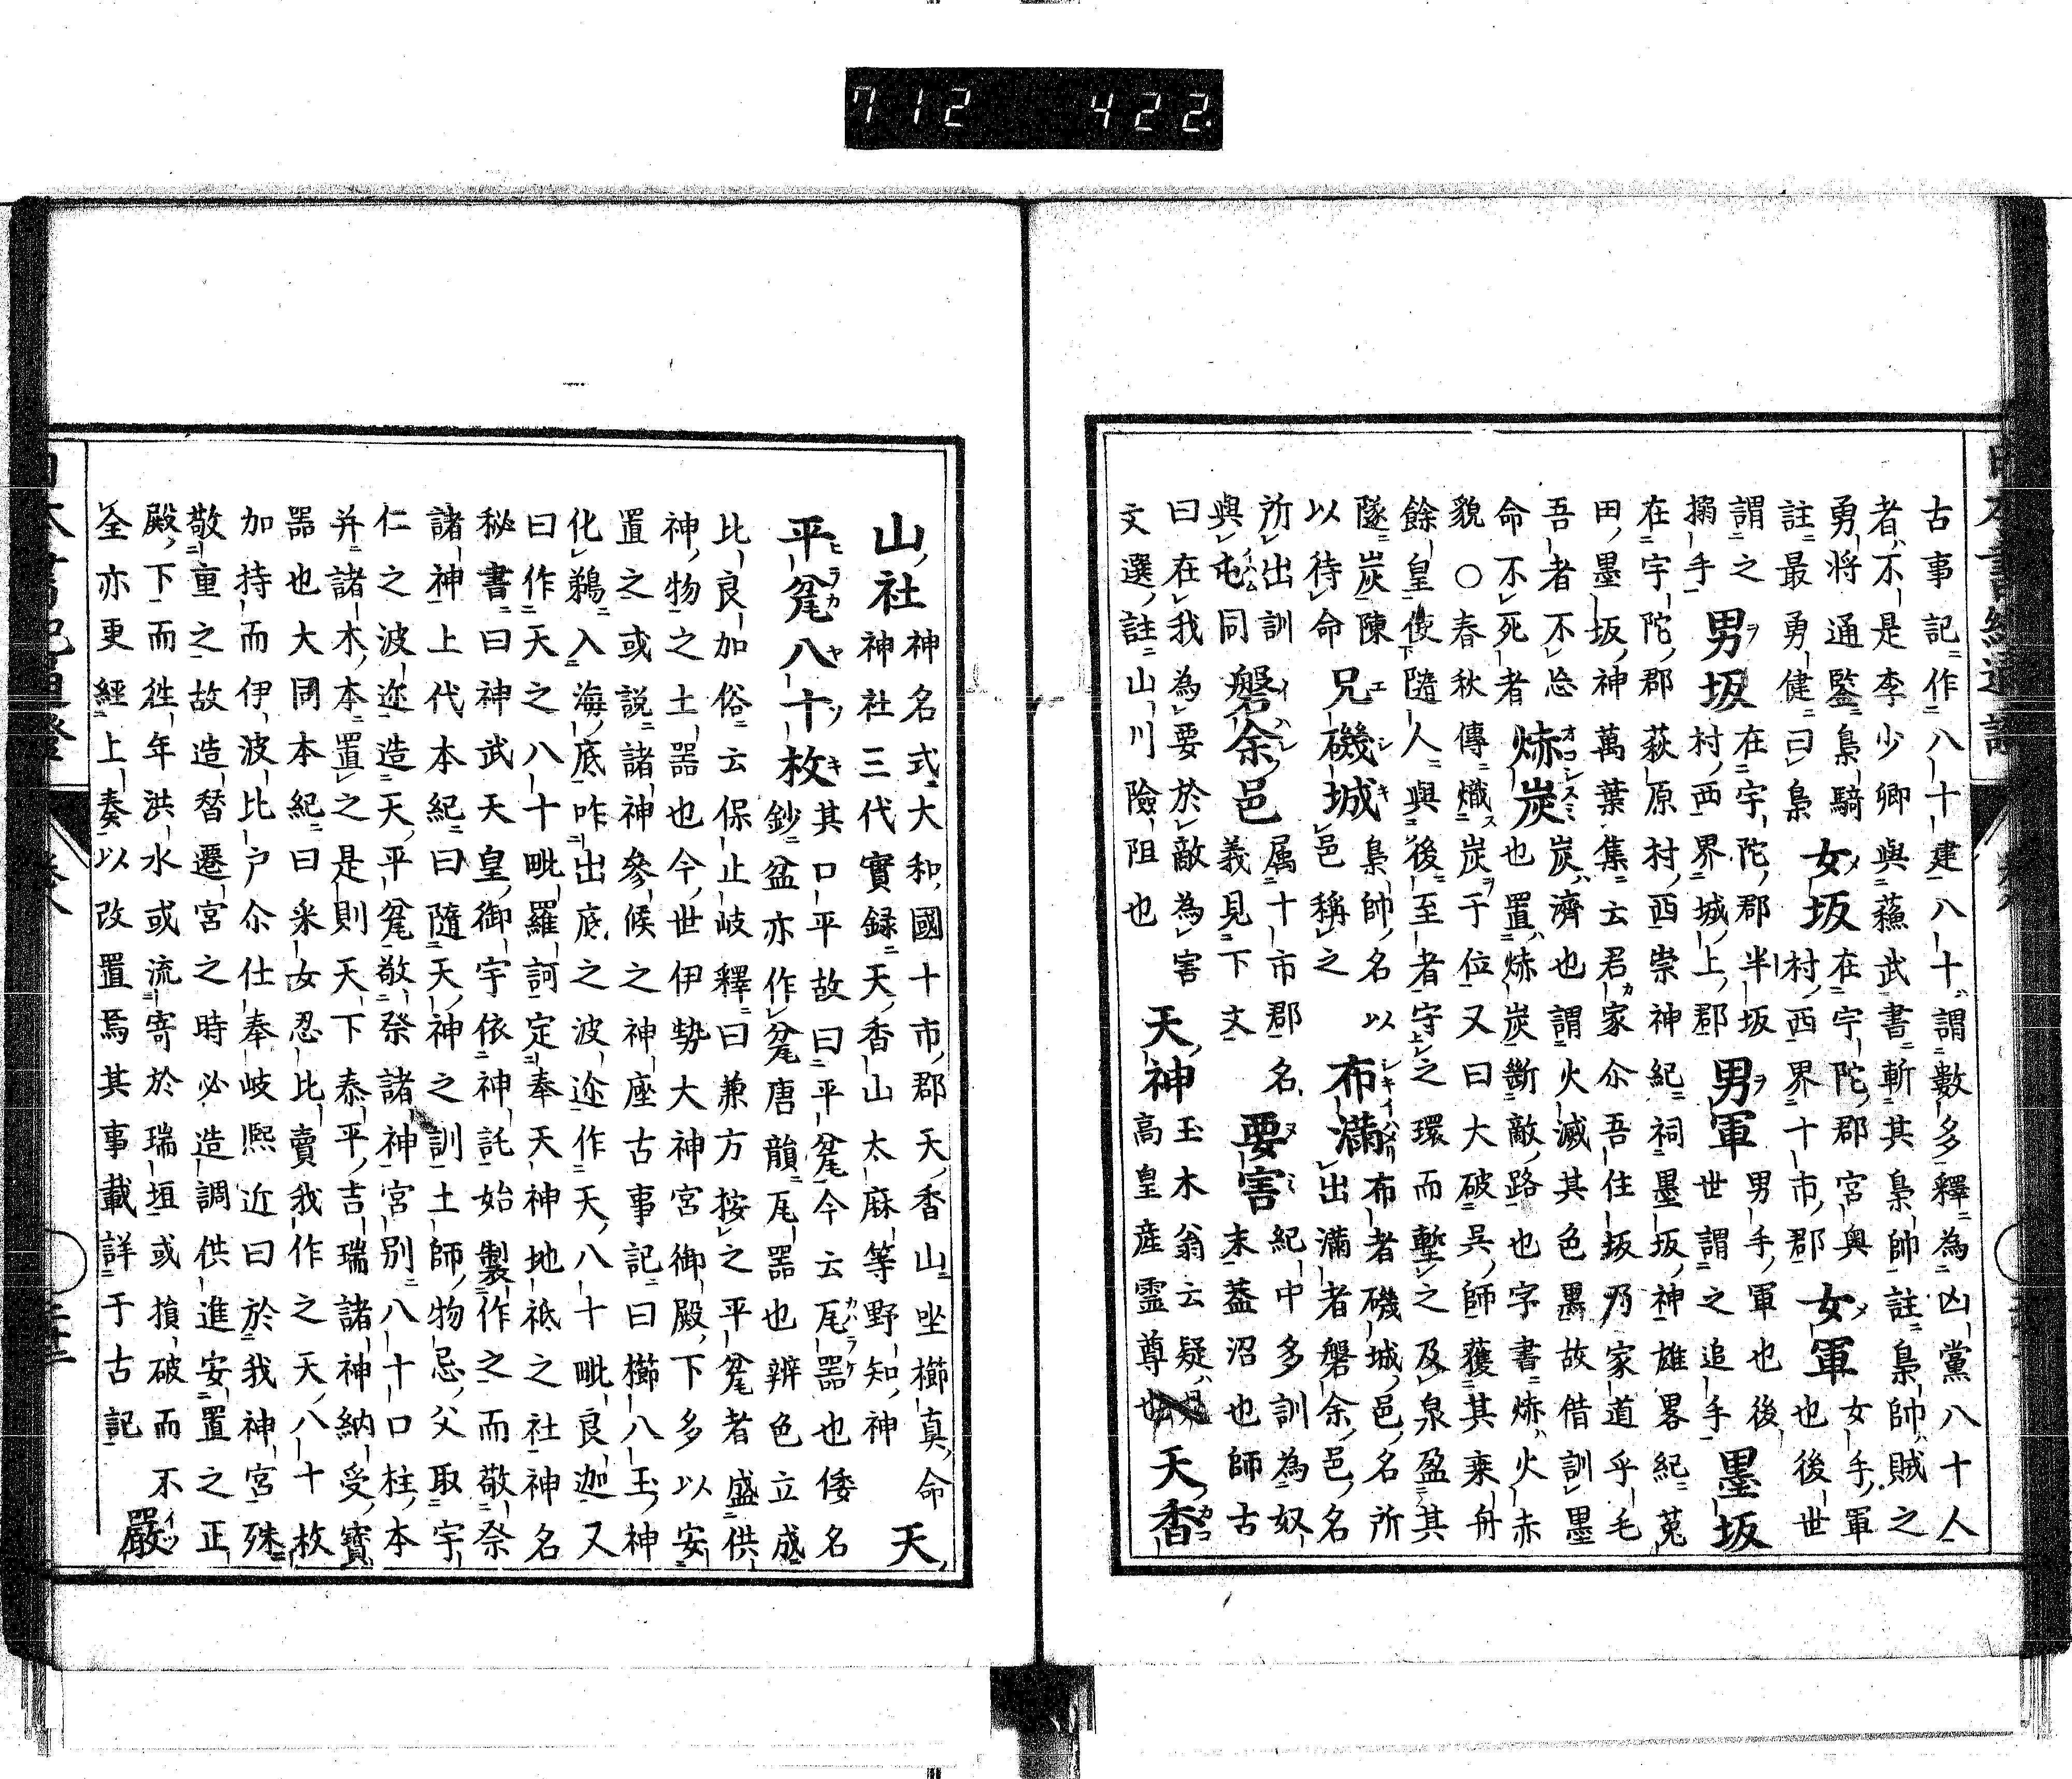 古事記作八十建八十謂數多釋為凶黨八十人
者不是李少卿與蘓武書斬其梟帥註梟帥賊之
勇將通鑑梟騎
註最勇健曰梟
女坂
在宇陀郡宮奥
村西界十市郡
女軍
女手軍
也後世
謂之
搦手
男坂
在宇陀郡半坂
村西界城上郡
男軍
男手軍也後
世謂之追手
墨坂
在宇陀郡荻原村西崇神紀祠墨坂神雄畧紀菟
田墨坂神萬葉集云君家尒吾住坂乃家道乎毛
吾者不忘
命不死者
焃炭
炭濟也謂火滅其色黒故借訓墨
也置焃炭斷敵路也字書焃火赤
貌○春秋傳熾炭于位又曰大破吳師獲其乘舟
餘皇使隨人與後至者守之環而塹之及泉盈其
隧炭陳
以待命
兄磯城
梟帥名以
邑稱之
布滿
布者磯城邑名所
出滿者磐余邑名
所出訓
與屯同
磐余邑
属十市郡名
義見下文
要害
紀中多訓為奴
末蓋沼也師古
曰在我為要於敵為害
文選註山川險阻也
天神
玉木翁云疑
高皇産霊尊也
天香
山社
神名式大和國十市郡天香山坐櫛真命
神社三代實録天香山太麻等野知神
天
平瓮八十枚
其口平故曰平瓮今云瓦器也倭名
鈔盆亦作瓮唐韻瓦器也辨色立成
比良加俗云保止岐釋曰兼方按之平瓮者盛供
神物之土器也今世伊勢大神宮御殿下多以安
置之或説諸神參候之神座古事記曰櫛八玉神
化鵜入海底咋出底之波迩作天八十毗良迦又
曰作天之八十毗羅訶定奉天神地祇之社神名
秘書曰神武天皇御宇依神託始製作之而敬祭
諸神上代本紀曰隨天神之訓土師物忌父取宇
仁之波迩造天平瓮敬祭諸神宮別八十口柱本
并諸木本置之是則天下泰平吉瑞諸神納受寳
器也大同本紀曰釆女忍比賣我作之天八十枚
加持而伊波比戸尒仕奉岐熙近曰於我神宮殊
敬重之故造替遷宮之時必造調供進安置之正
殿下而徃年洪水或流寄於瑞垣或損破而不
全亦更經上奏以改置焉其事載詳于古記
嚴